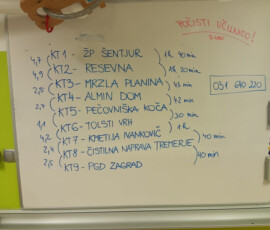 POČISTI UČILNICO!
KT1 - ŽP ŠENTJUR
4,7 1h 40 min
KT2 - RESEVNA
4,9 1h 20 min
KT3 - MRZLA PLANINA
2,8 45 min
KT4 - ALMIN DOM
2,4 42 min
KT5 - PEČOVNIŠKA KOČA
30 min
KT6 - TOLSTI VRH
1,1 1h
KT7 - KMETIJA IVANKOVIČ
4,2 40 min
KT8 - ČISTILNA NAPRAVA TREMERJE
2,4 40 min
KT9 - PGD ZAGRAD
2,5
031 610 220